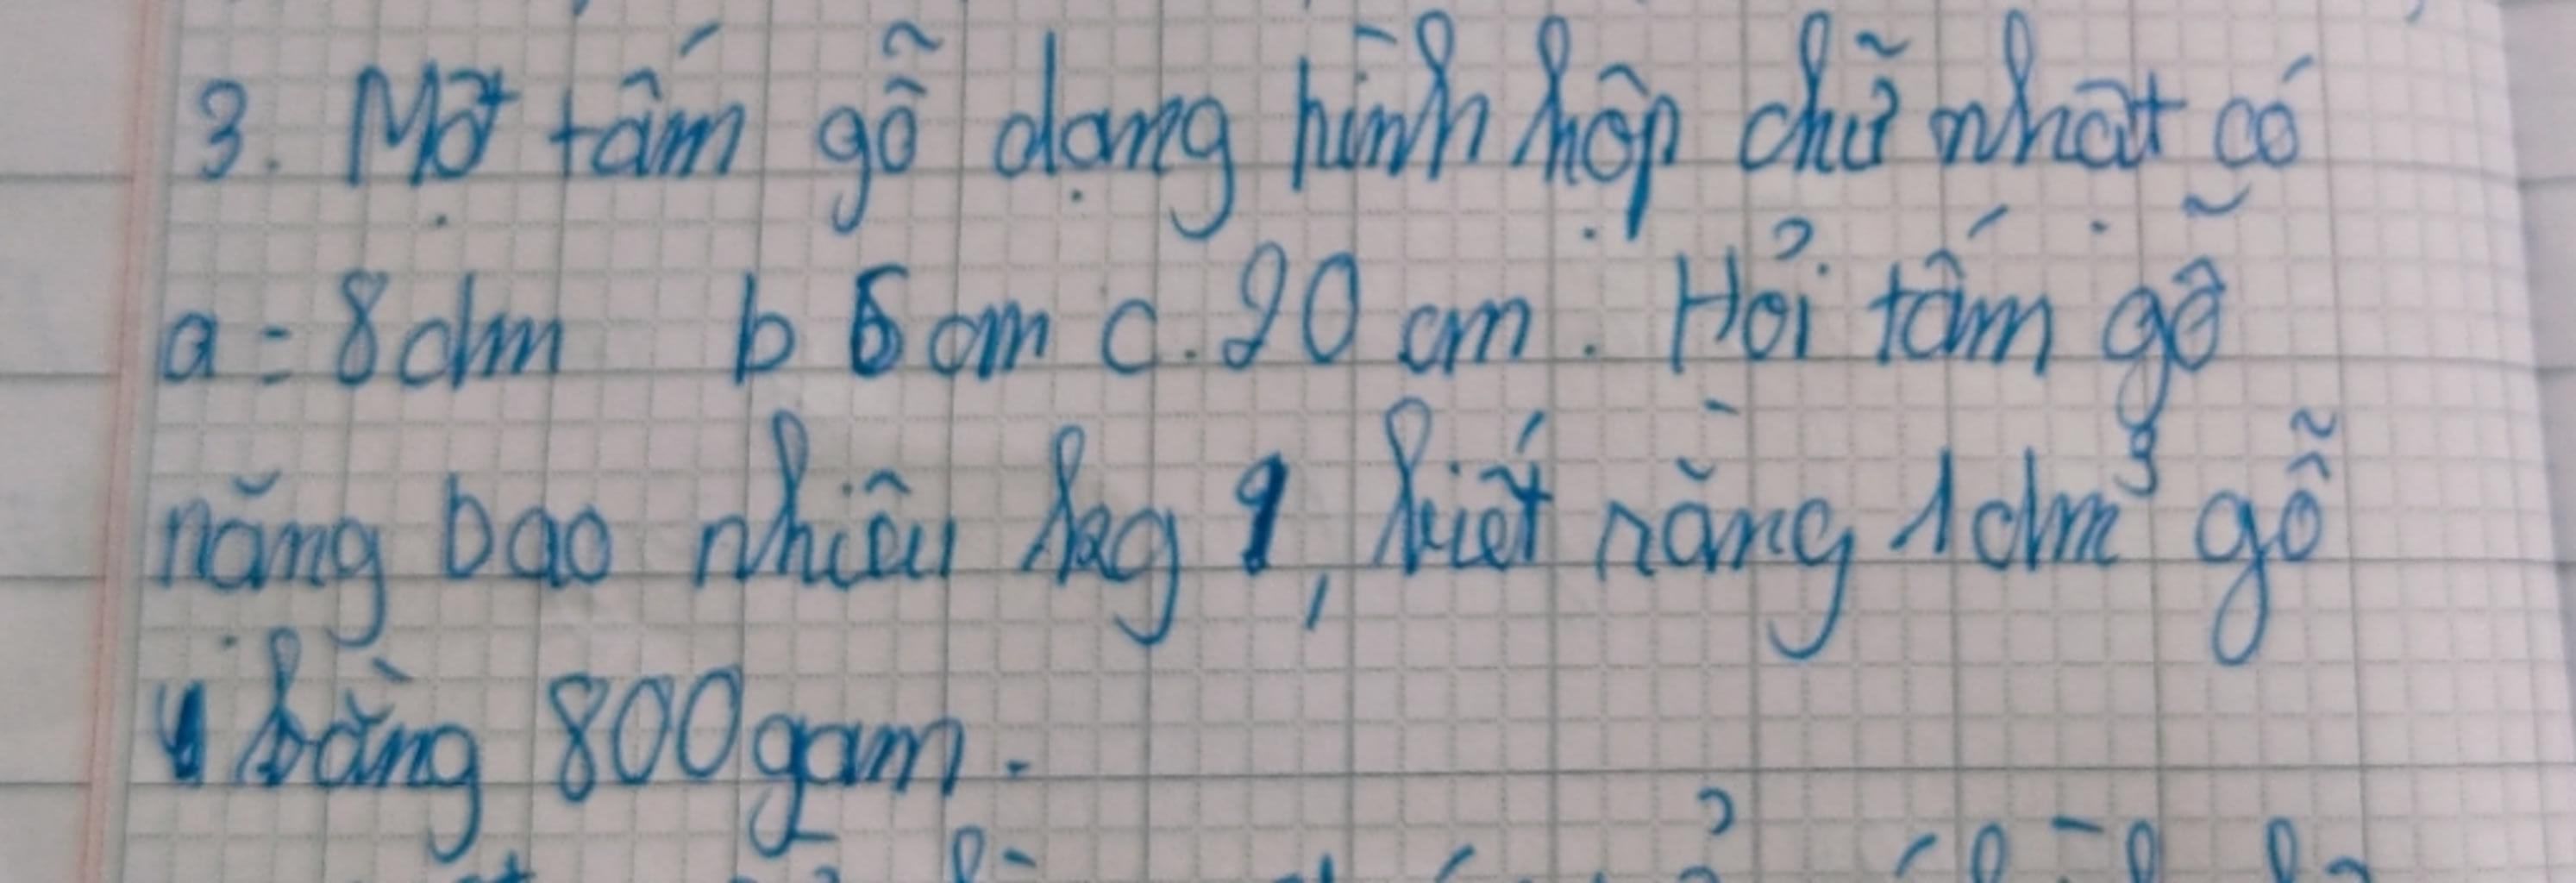 3. Một tấm gỗ dạng hình hộp chữ nhật có
a = 8dm b 5 cm c. 20 cm. Hỏi tấm gỗ
nặng bao nhiêu kg, biết rằng 1dm³ gỗ
bằng 800gam.